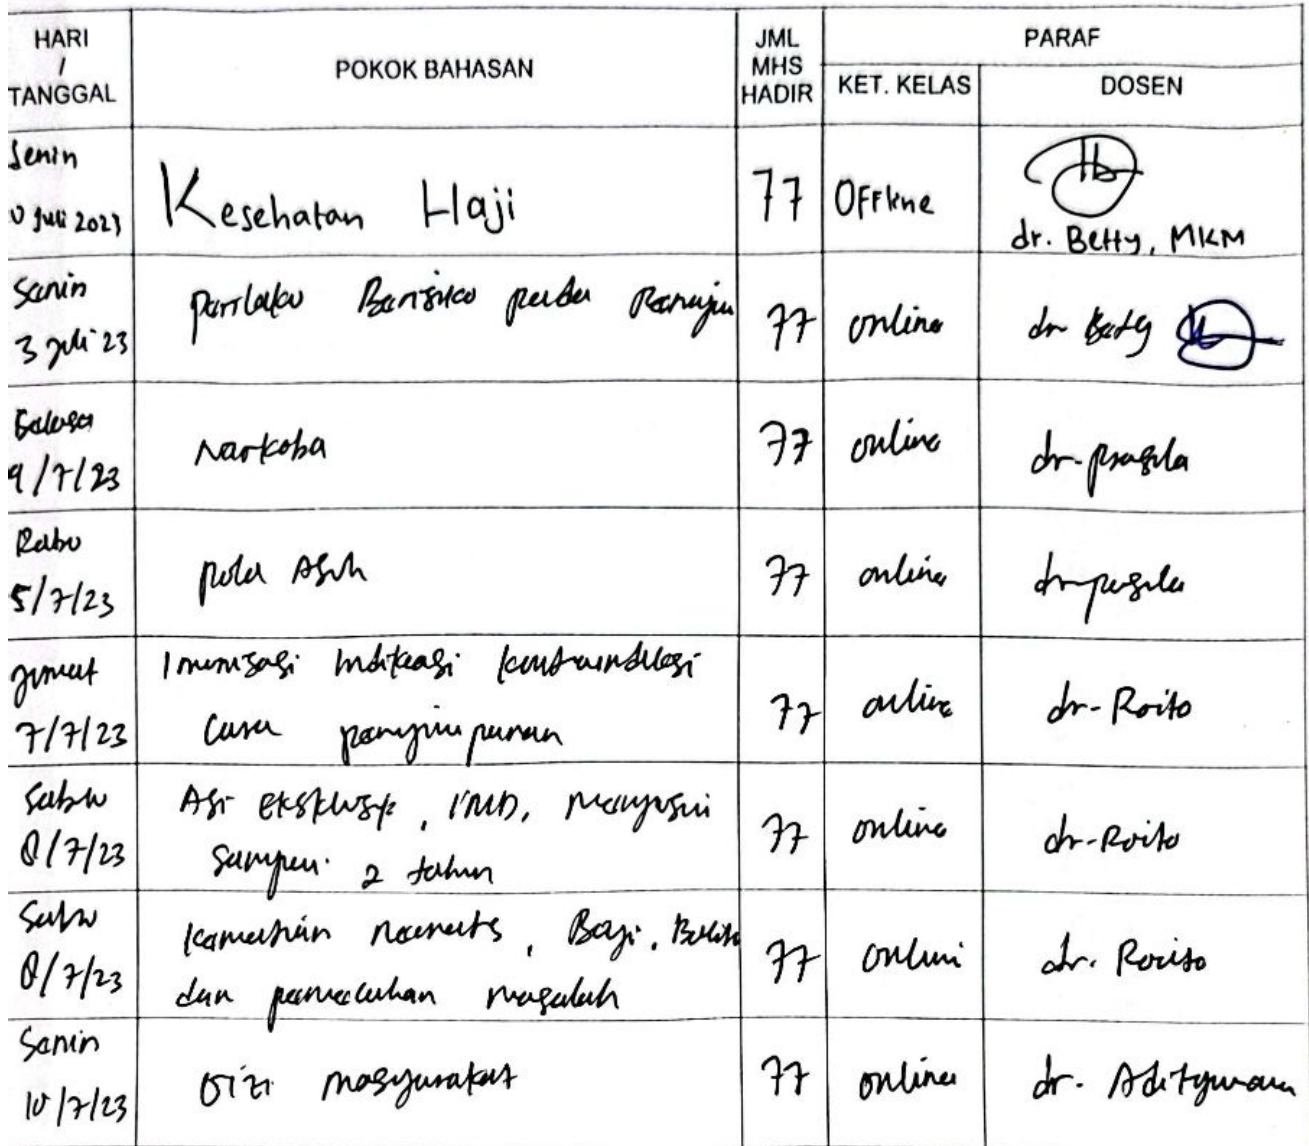 HARI / TANGGAL
POKOK BAHASAN
JML MHS HADIR
PARAF
KET. KELAS
DOSEN
Senin
0 Juli 2023
Kesehatan Haji
77
Offline
dr. Betty, MKM
Senin
3 Juli 23
Perilaku Berisiko pada Remaja
77
online
dr Betty
Selasa
4/7/23
Narkoba
77
online
dr.
Rabu
5/7/23
pola Asuh
77
online
dr
Jumat
7/7/23
Imunisasi Indikasi kontraindikasi
Cara penyimpanan
77
online
dr- Roito
Sabtu
8/7/23
Asi Eksklusif, IMD, Menyusui
Sampai 2 tahun
77
online
dr-Roito
Sabtu
8/7/23
Kematian neonatus, Bayi, Balita
dan pemecahan masalah
77
online
dr. Roito
Senin
10/7/23
Gizi masyarakat
77
online
dr. Adityawan